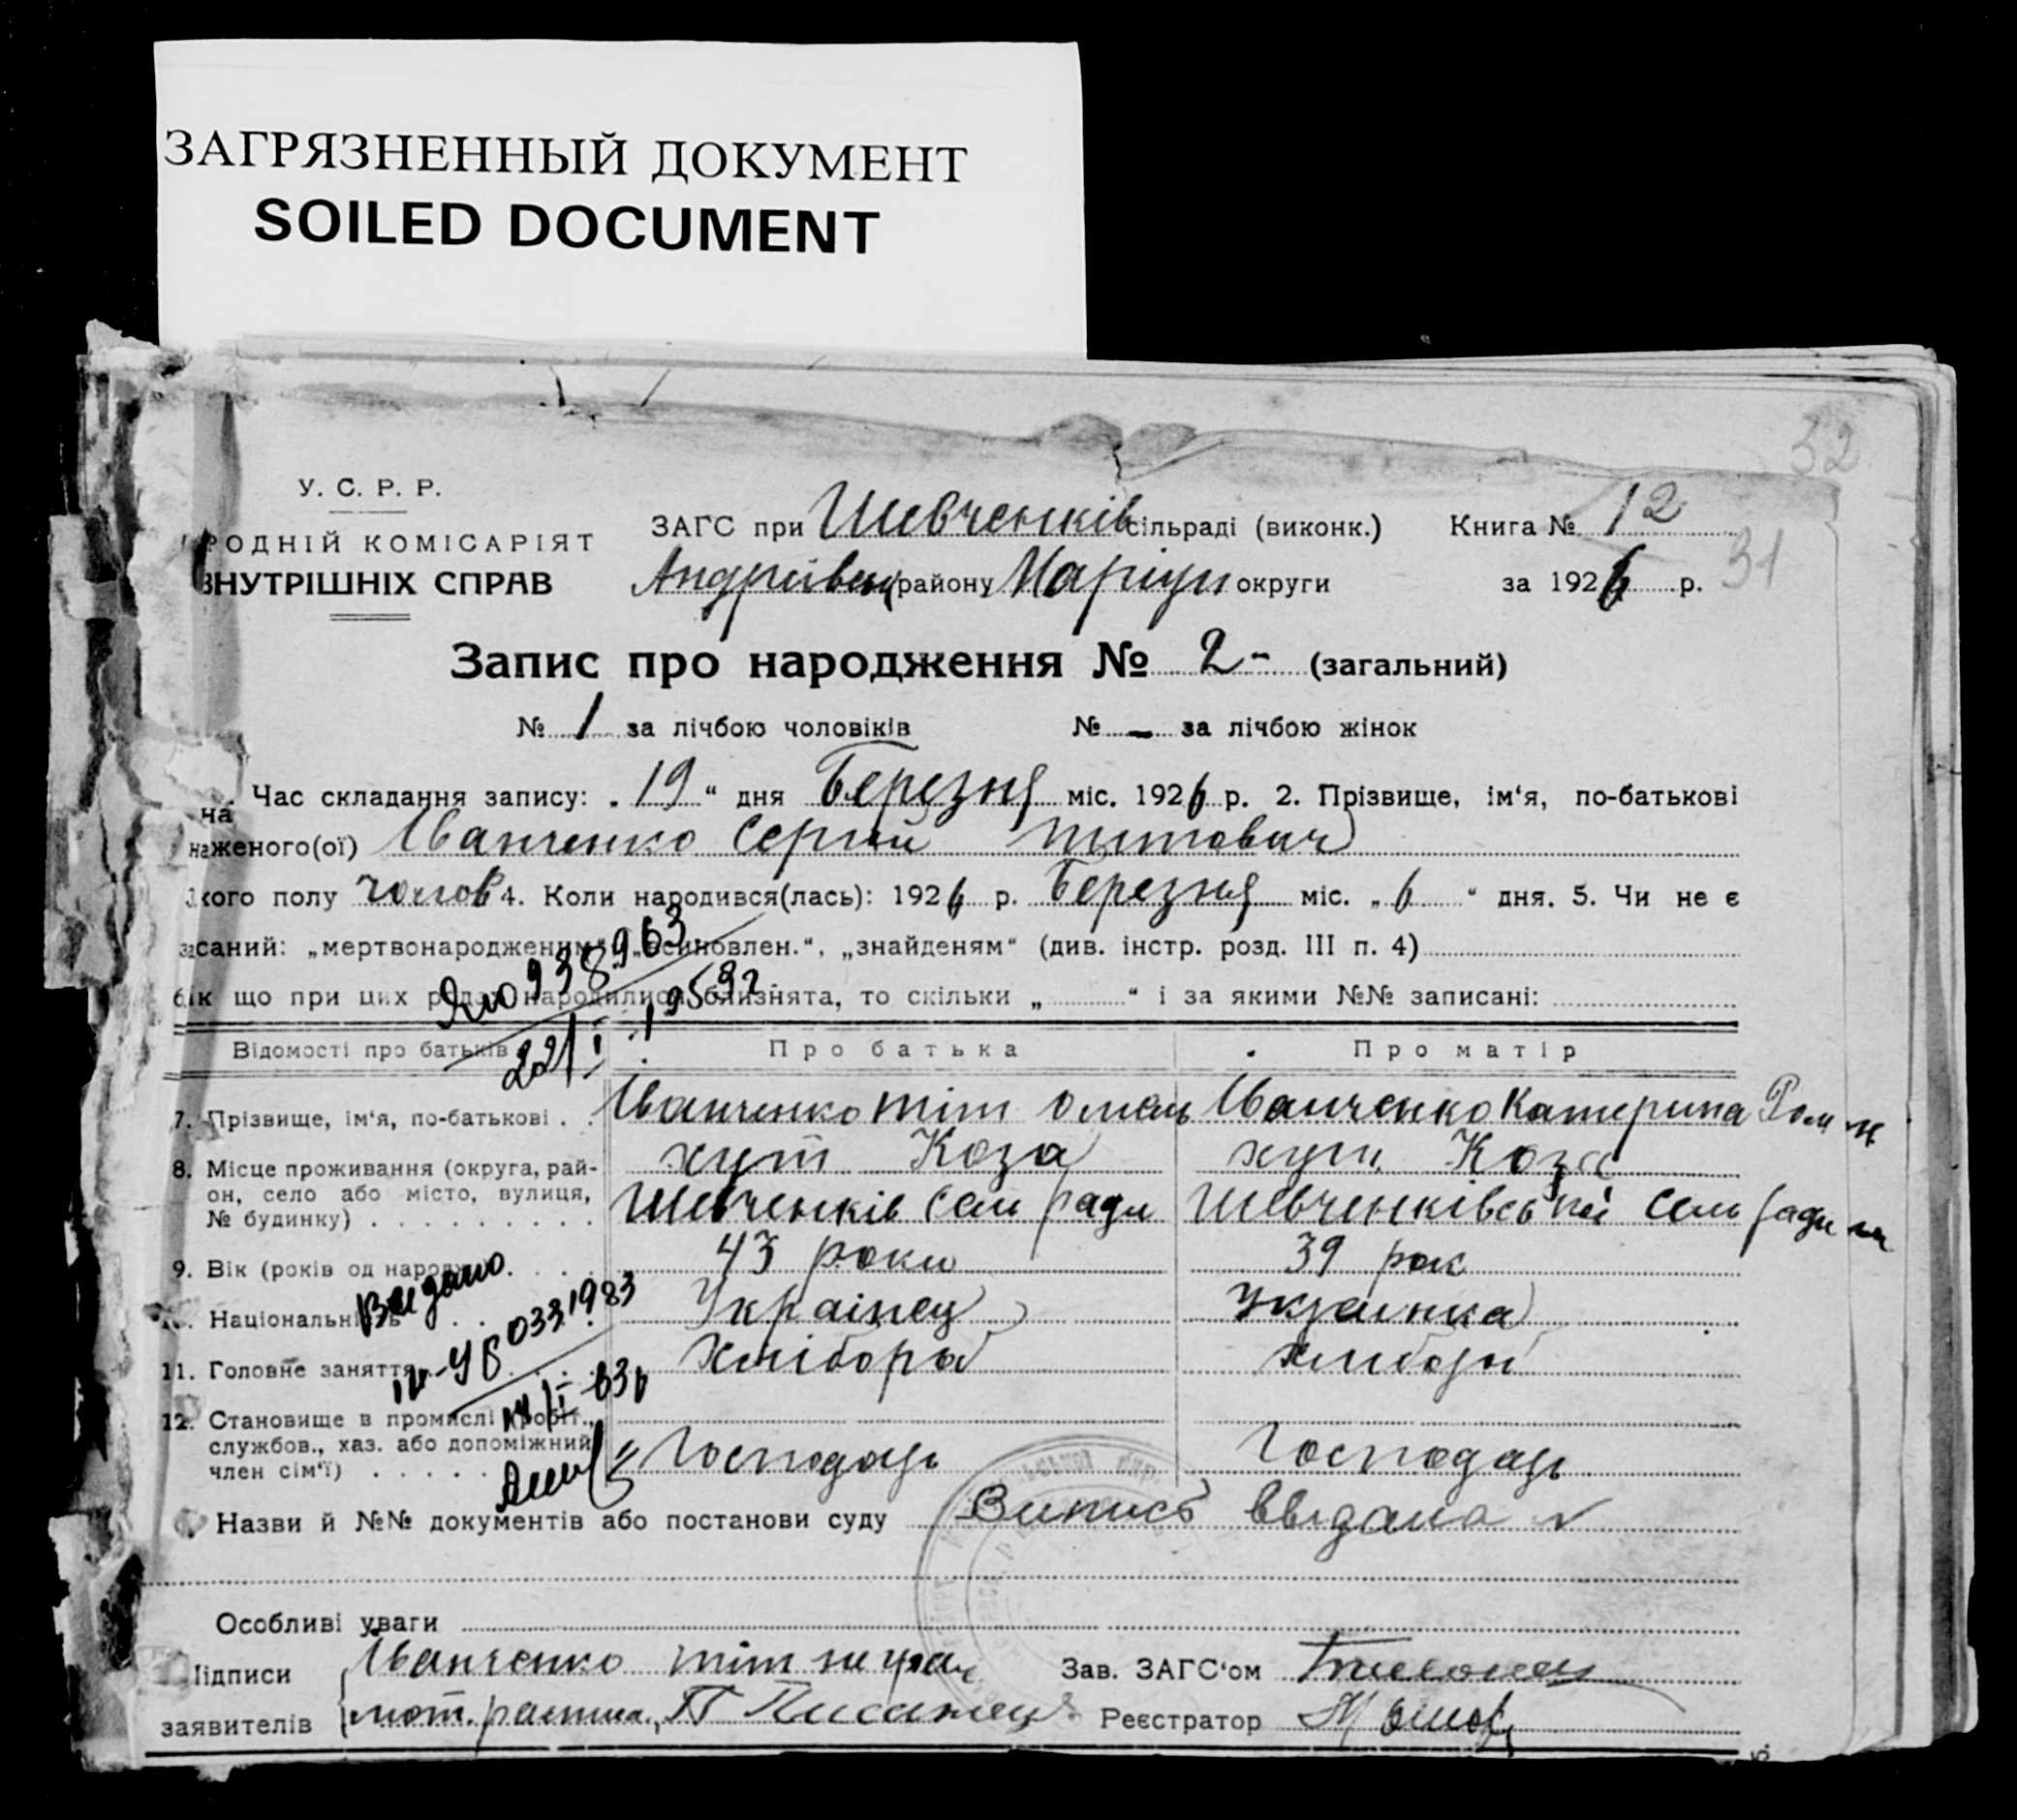 ЗАГРЯЗНЕННЫЙ ДОКУМЕНТ
SOILED DOCUMENT
32
У. С. Р. Р.
РОДНІЙ КОМІСАРІЯТ
ВНУТРІШНІХ СПРАВ
ЗАГС при Шевченків сільраді (виконк.) Книга № 12
31
Андріївськ району Маріуп округи за 1926 р.
Запис про народження № 2- (загальний)
№ 1 за лічбою чоловіків № - за лічбою жінок
Час складання запису: „19“ дня Березня міс. 1926 р. 2. Прізвище, ім'я, по-батькові
на
наженого(ої) Іванченко Сергій Титович
кого полу чолов 4. Коли народився(лась): 1926 р. Березня міс. „6“ дня. 5. Чи не є
саний: „мертвонародженим“, „всиновлен.“, „знайденям“ (див. інстр. розд. III п. 4)
що при цих родах народилися близнята, то скільки „ “ і за якими №№ записані:
938963
22/I 1959 г.
Відомості про батьків Про батька Про матір
7. Прізвище, ім'я, по-батькові . . Іванченко Тіт Омель Іванченко Катерина Ром
8. Місце проживання (округа, район, село або місто, вулиця, № будинку) хут Коза хут. Коза
Шевченків сель ради Шевченківській сель ради
9. Вік (років од народж. 43 роки 39 рок
10. Національність Українец Украинка
11. Головне заняття хлібороб хлибороб
12. Становище в промислі (робіт.,
службов., хаз. або допоміжний
член сім'ї) Господарь Господарь
Видано
IV-ЧБ 0331983
Назви й №№ документів або постанови суду Випись ввидана
Особливі уваги
Підписи Іванченко Тіт
заявителів
Зав. ЗАГС'ом
Реєстратор